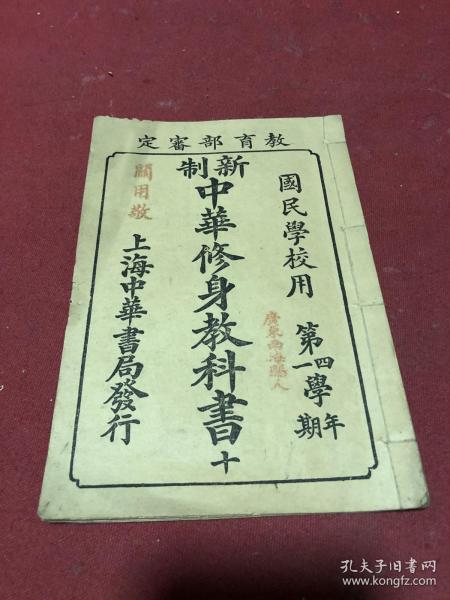 教育部審定
國民學校用
第四學年
第一學期
新制
中華修身教科書十
上海中華書局發行
關用敬
廣東南海縣人
孔夫子旧书网
www.kongfz.com